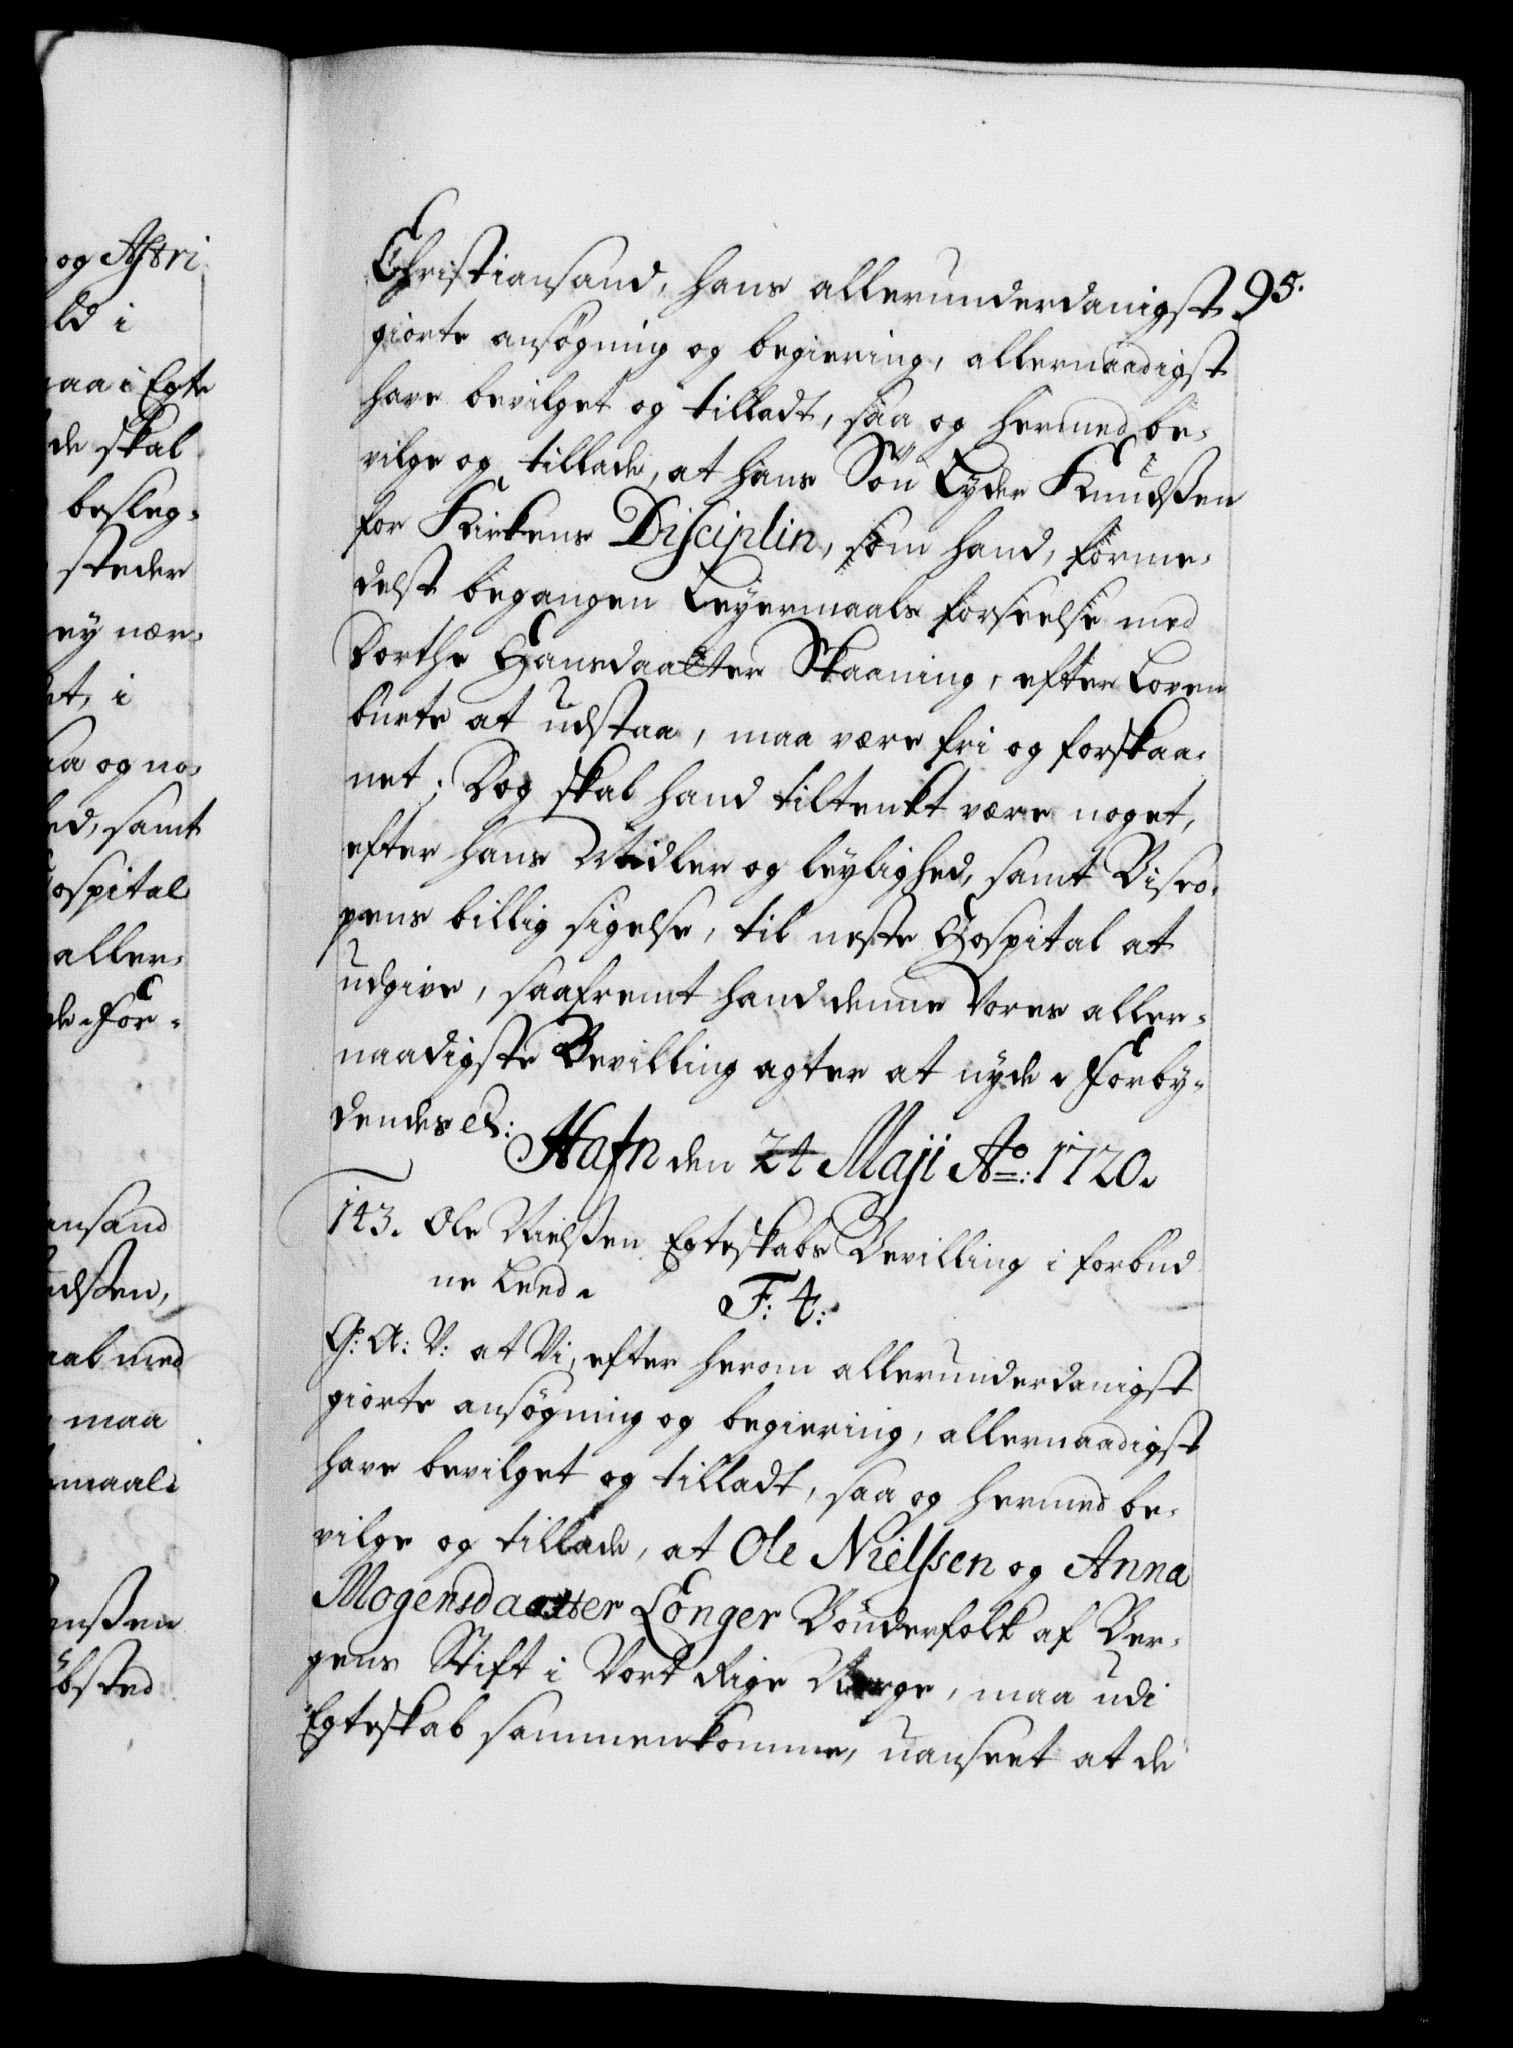 og Astri
ld i
aa i Egte
de skal
besleg-
steder
ey nær-
et, i
aa og no-
ed, samt
ospital
aller-
de. For-
ansand
udsten,
aal med
maa
maal.
ensten
Christiansand, hans allerunderdanigst 95.
giorte ansøgning og begiering, allernaadigst
have bevilget og tilladt, saa og hermed be-
vilge og tillade, at hans Søn Eyder Knudssen
for Kirkens Disciplin, som hand, forme-
delst begangen Leyermaals forseelse med
Dorthe Hansdaatter Skaaning, efter Loven
burte at udstaa, maa være fri og forskaa-
net; Dog skal hand tiltenkt være noget,
efter hans Midler og leylighed, samt Bisco-
pens billig sigelse, til neste Hospital at
udgive, saafremt hand denne Vores aller-
naadigste Bevilling agter at nyde. Forby-
dendes etc: Hafn den 24 Maji Ao: 1720.
143. Ole Nielssen Egteskabs Bevilling i forbud
ne Leed. F: 4:
G: A: V: at Vi, efter herom allerunderdanigst
giorte ansøgning og begiering, allernaadigst
have bevilget og tilladt, saa og hermed be-
vilge og tillade, at Ole Nielssen og Anna
Mogensdaatter Longer Bønderfolk af Ber-
gens Stift i Vort Rige Norge, maa udi
Egteskab sammenkomme, uanseet at de